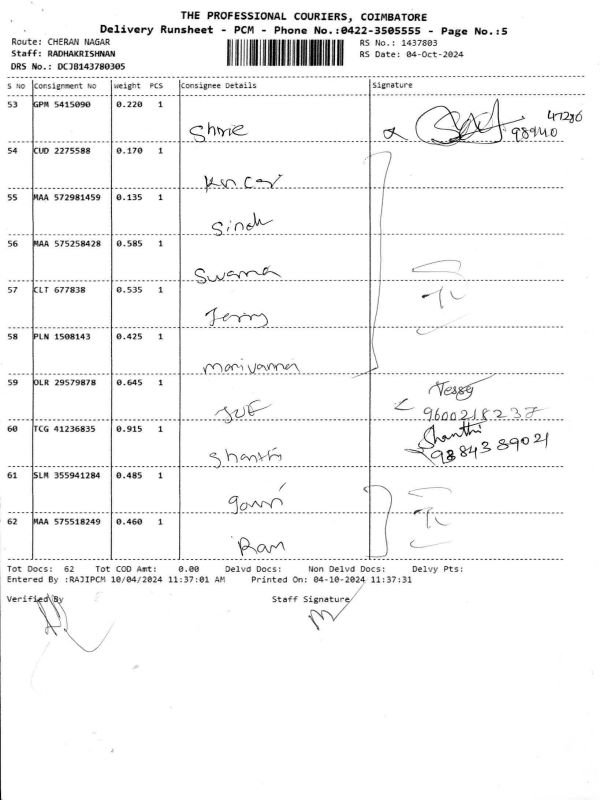 THE PROFESSIONAL COURIERS, COIMBATORE
Delivery Runsheet - PCM - Phone No.:0422-3505555 - Page No.:5
Route: CHERAN NAGAR RS No.: 1437803
Staff: RADHAKRISHNAN RS Date: 04-Oct-2024
DRS No.: DCJB143780305
S No Consignment No weight PCS Consignee Details Signature
53 GPM 5415090 0.220 1
Shrie 98940 47286
54 CUD 2275588 0.170 1
55 MAA 572981459 0.135 1
Sindh
56 MAA 575258428 0.585 1
Swarna
57 CLT 677838 0.535 1
Jerry
58 PLN 1508143 0.425 1
manivanna
59 OLR 29579878 0.645 1 Jessy
JUE 9600218237
60 TCG 41236835 0.915 1 Shanthi
Shanthi 9884389021
61 SLM 355941284 0.485 1
gowri
62 MAA 575518249 0.460 1
Ram
Tot Docs: 62 Tot COD Amt: 0.00 Delvd Docs: Non Delvd Docs: Delvy Pts:
Entered By :RAJIPCM 10/04/2024 11:37:01 AM Printed On: 04-10-2024 11:37:31
Verified By Staff Signature